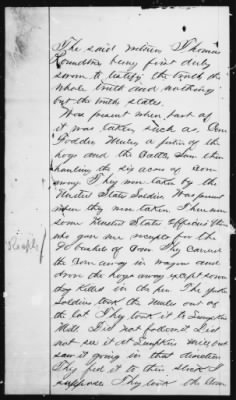 The said witness Thomas
Roundtree being first duly
sworn to testify the truth the
whole truth and nothing
but the truth states.
Was present when part of
it was taken such as Corn
Fodder Mules, a portion of the
hogs and the Cattle, Saw them
hauling the six acres of corn
away. They were taken by the
United States Soldiers. Was present
when they were taken. There was
some United States Officers there
who gave me receipt for the
90 bushels of Corn They carried
the Corn away in wagons and
drove the hogs away except some
they killed in the pen. The
Soldiers took the Mules out of
the lot They took it to Lumpkins
Mill. Did not follow it I did
not see it at Lumpkins Mill, but
saw it going in that direction
They fed it to their stock I
suppose. They took the Corn